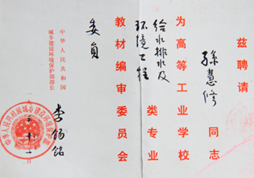 兹聘请
孙慧修同志
为高等工业学校
给水排水及
环境工程
类专业
教材编审委员会
委员
中华人民共和国
城乡建设环境保护部部长
李锡铭